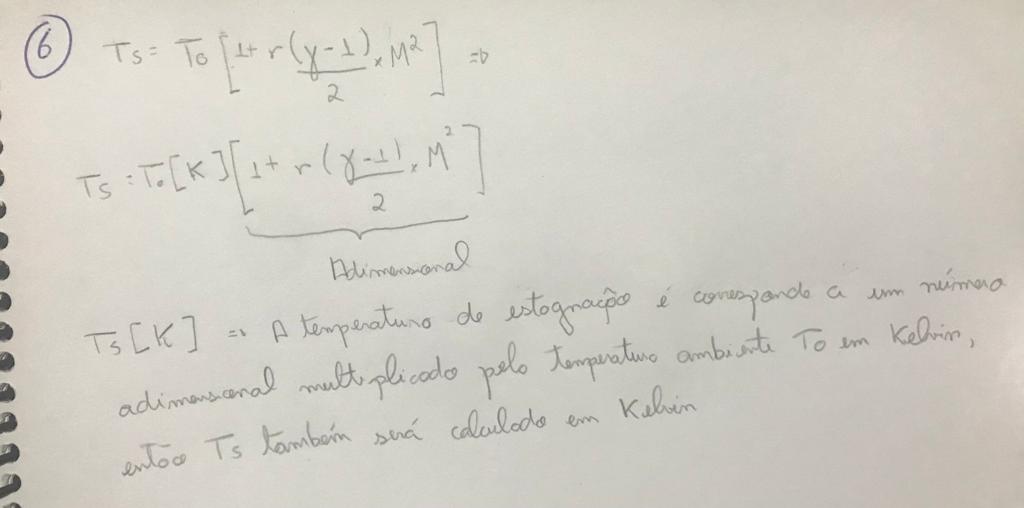 6 Ts = To [1 + r (γ - 1) × M² / 2] ⇒
Ts = To [K] [1 + r (γ - 1) × M² / 2]
Adimensional
Ts [K] ⇒ A temperatura de estagnação é corresponde a um número
adimensional multiplicado pela temperatura ambiente To em Kelvin,
então Ts também será calculado em Kelvin